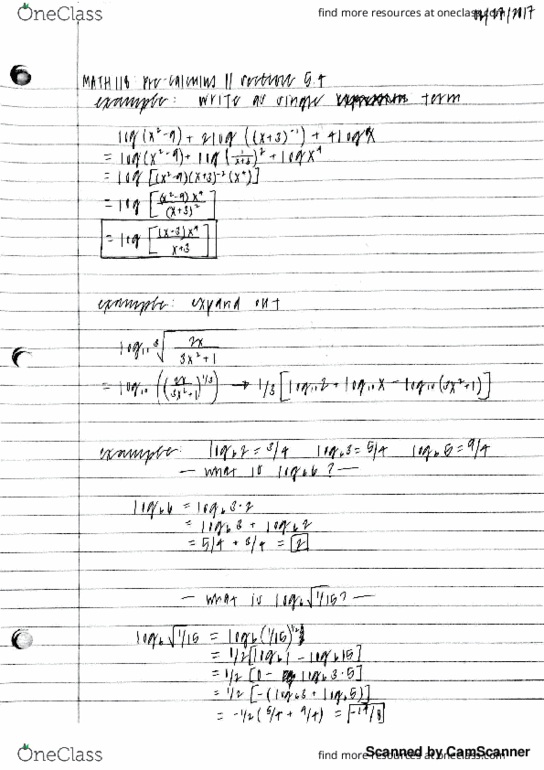 OneClass
find more resources at oneclass.com
MATH 118: pre-calculus 11 section 5.4
example: write as single term
log(x²-9) + 2log((x+3)⁻¹) + 4logx
= log(x²-9) + log(1/x+3)² + logx⁴
= log[(x²-9)(x+3)⁻²(x⁴)]
= log[(x²-9)x⁴/(x+3)²]
= log[(x-3)x⁴/x+3]
example: expand out
log₁₀ ³√2x/3x²+1
= log₁₀((2x/3x²+1)^1/3) → 1/3[log₁₀2 + log₁₀x - log₁₀(3x²+1)]
example: log_b2 = 3/4 log_b3 = 5/4 log_b5 = 9/4
- what is log_b6? -
log_b6 = log_b3·2
= log_b3 + log_b2
= 5/4 + 3/4 = 2
- what is log_b√1/15? -
log_b√1/15 = log_b(1/15)^1/2
= 1/2[log_b1 - log_b15]
= 1/2[0 - log_b3·5]
= 1/2[-(log_b3 + log_b5)]
= -1/2(5/4 + 9/4) =
OneClass
find more resources at oneclass.com
Scanned by CamScanner